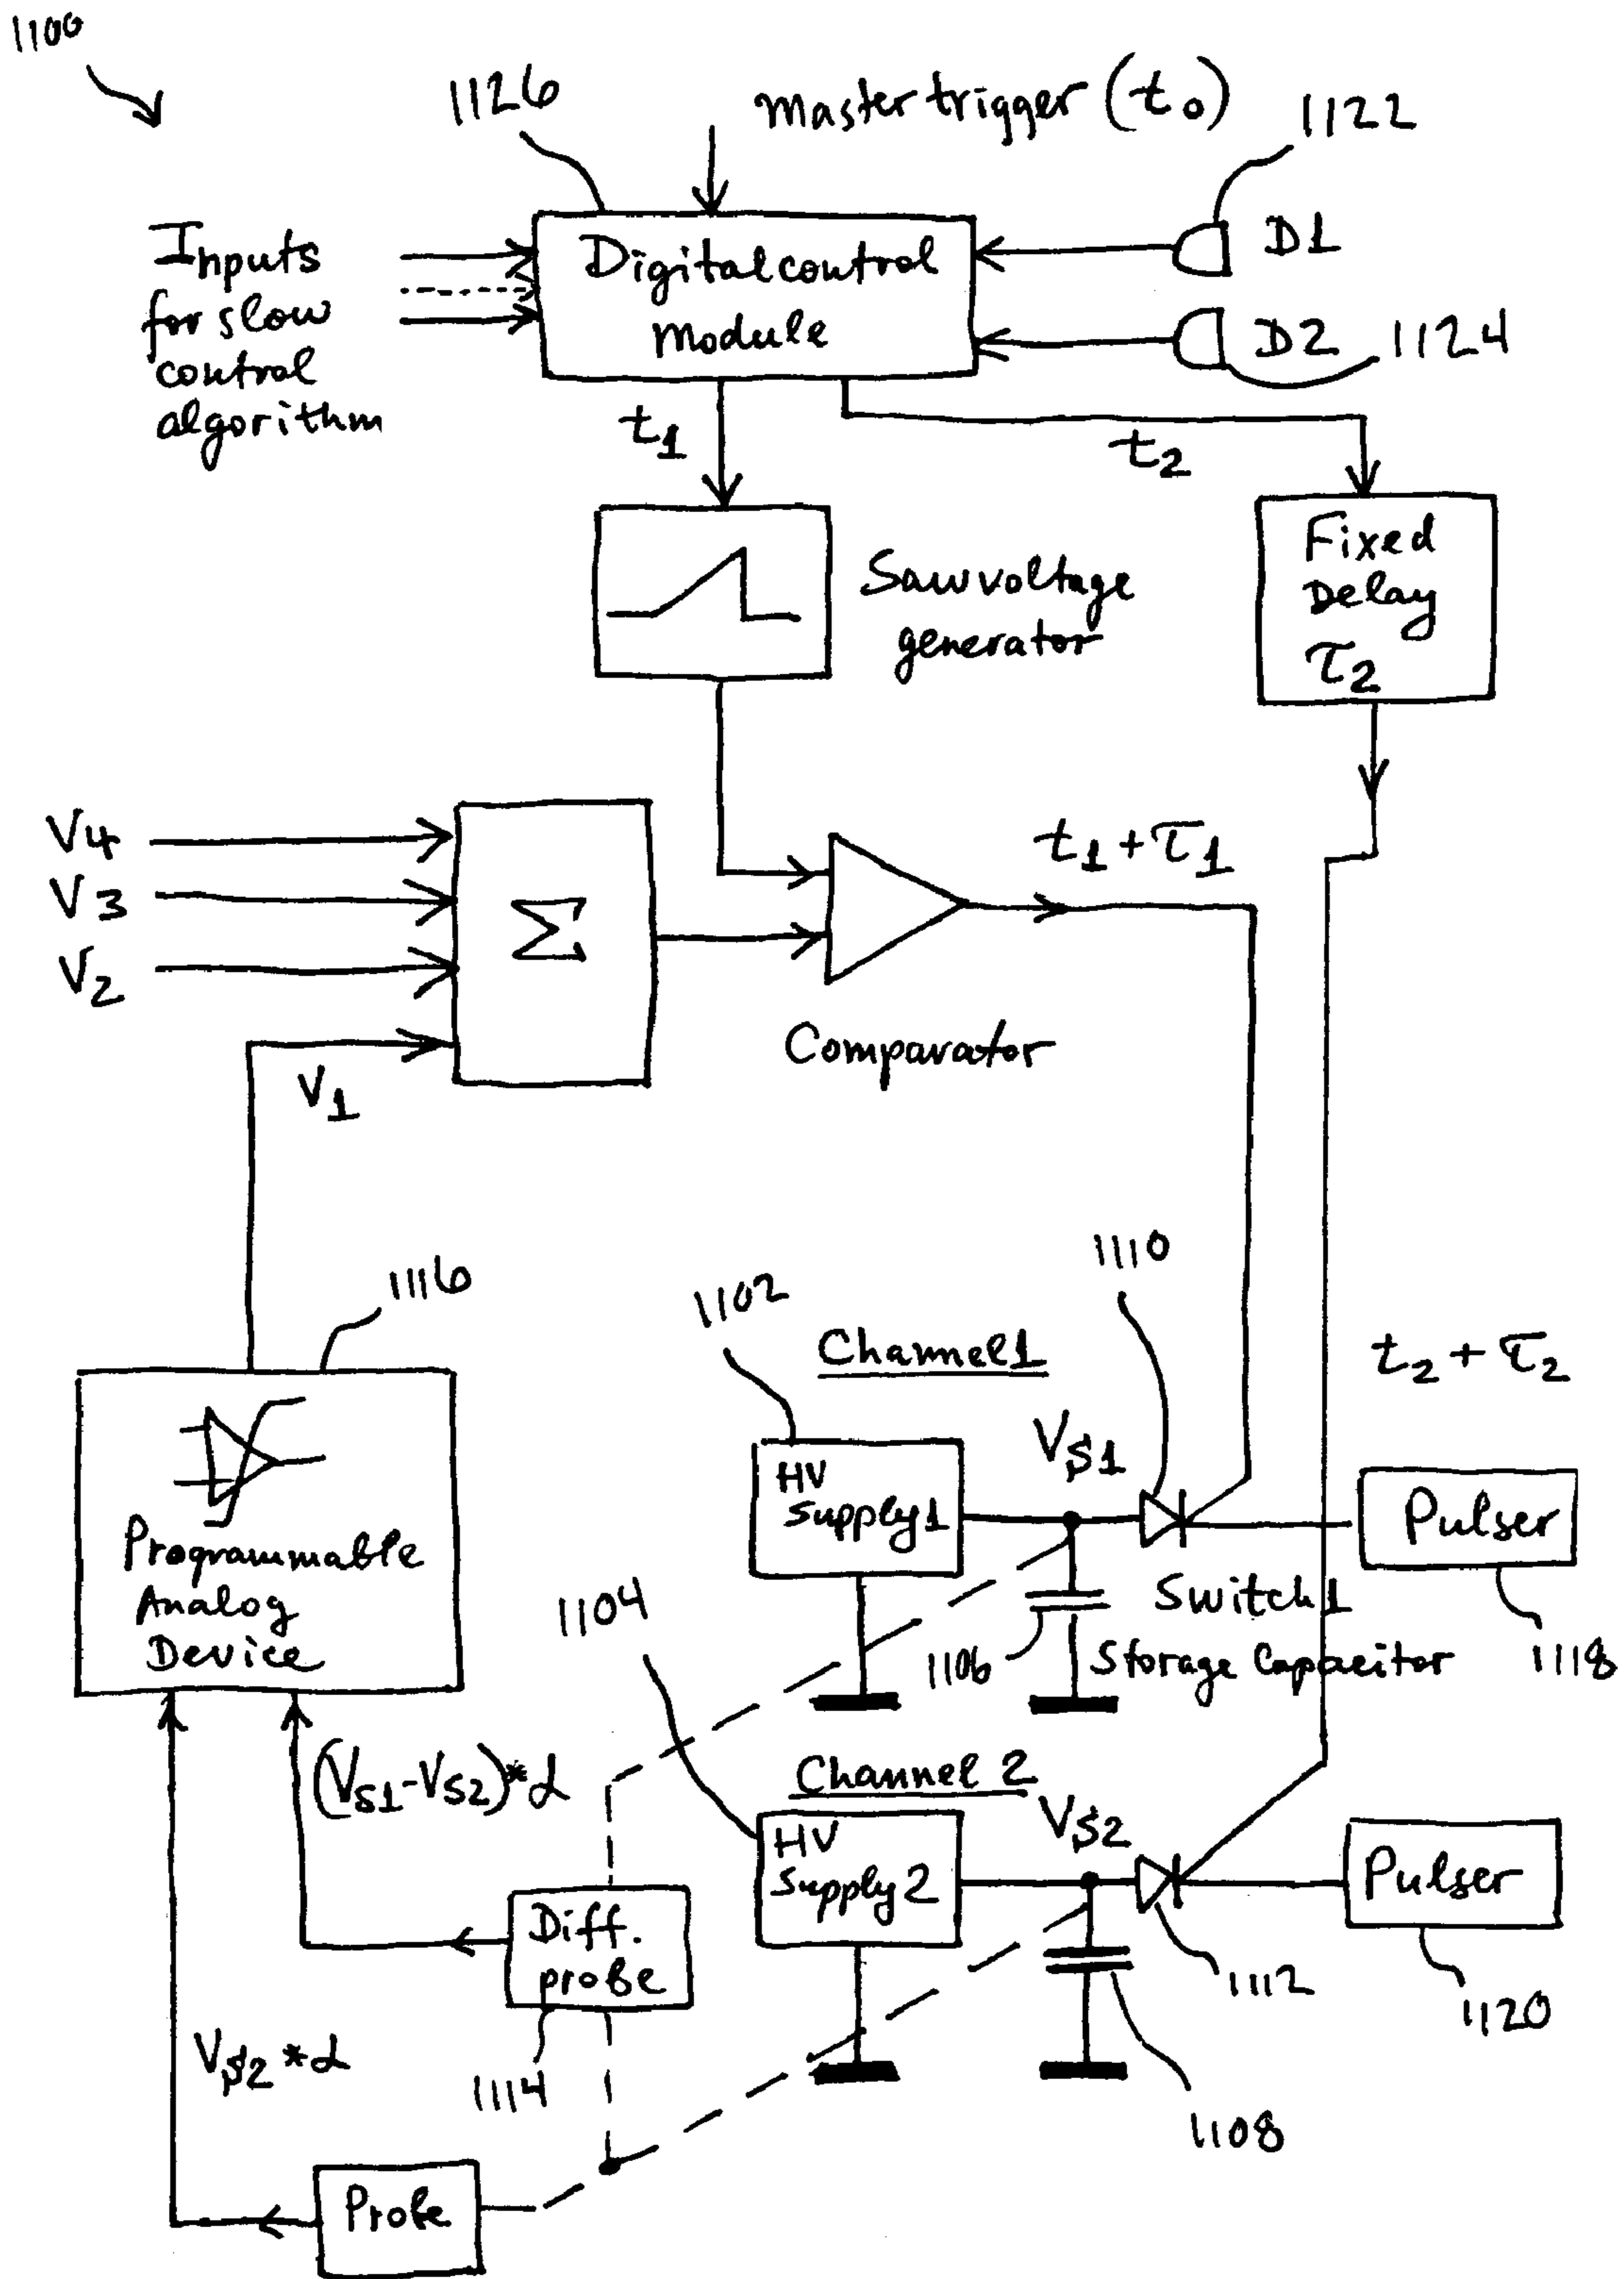 1100
1126
Master trigger (t₀)
1122
Inputs
for slow
control
algorithm
Digital control
Module
D1
D2
1124
t₁
t₂
Saw voltage
generator
Fixed
Delay
τ₂
V4
V3
V₂
V₁
Σ
t₁ + τ₁
Comparator
1116
1102
Channel 1
1110
t₂ + τ₂
Programmable
Analog
Device
HV
Supply 1
V_S1
Pulser
Switch 1
1104
1106
Storage Capacitor
1118
(V_S1-V_S2)*α
Channel 2
HV
Supply 2
V_S2
Pulser
Diff.
probe
1112
1120
V_S2 *α
1114
1108
Probe